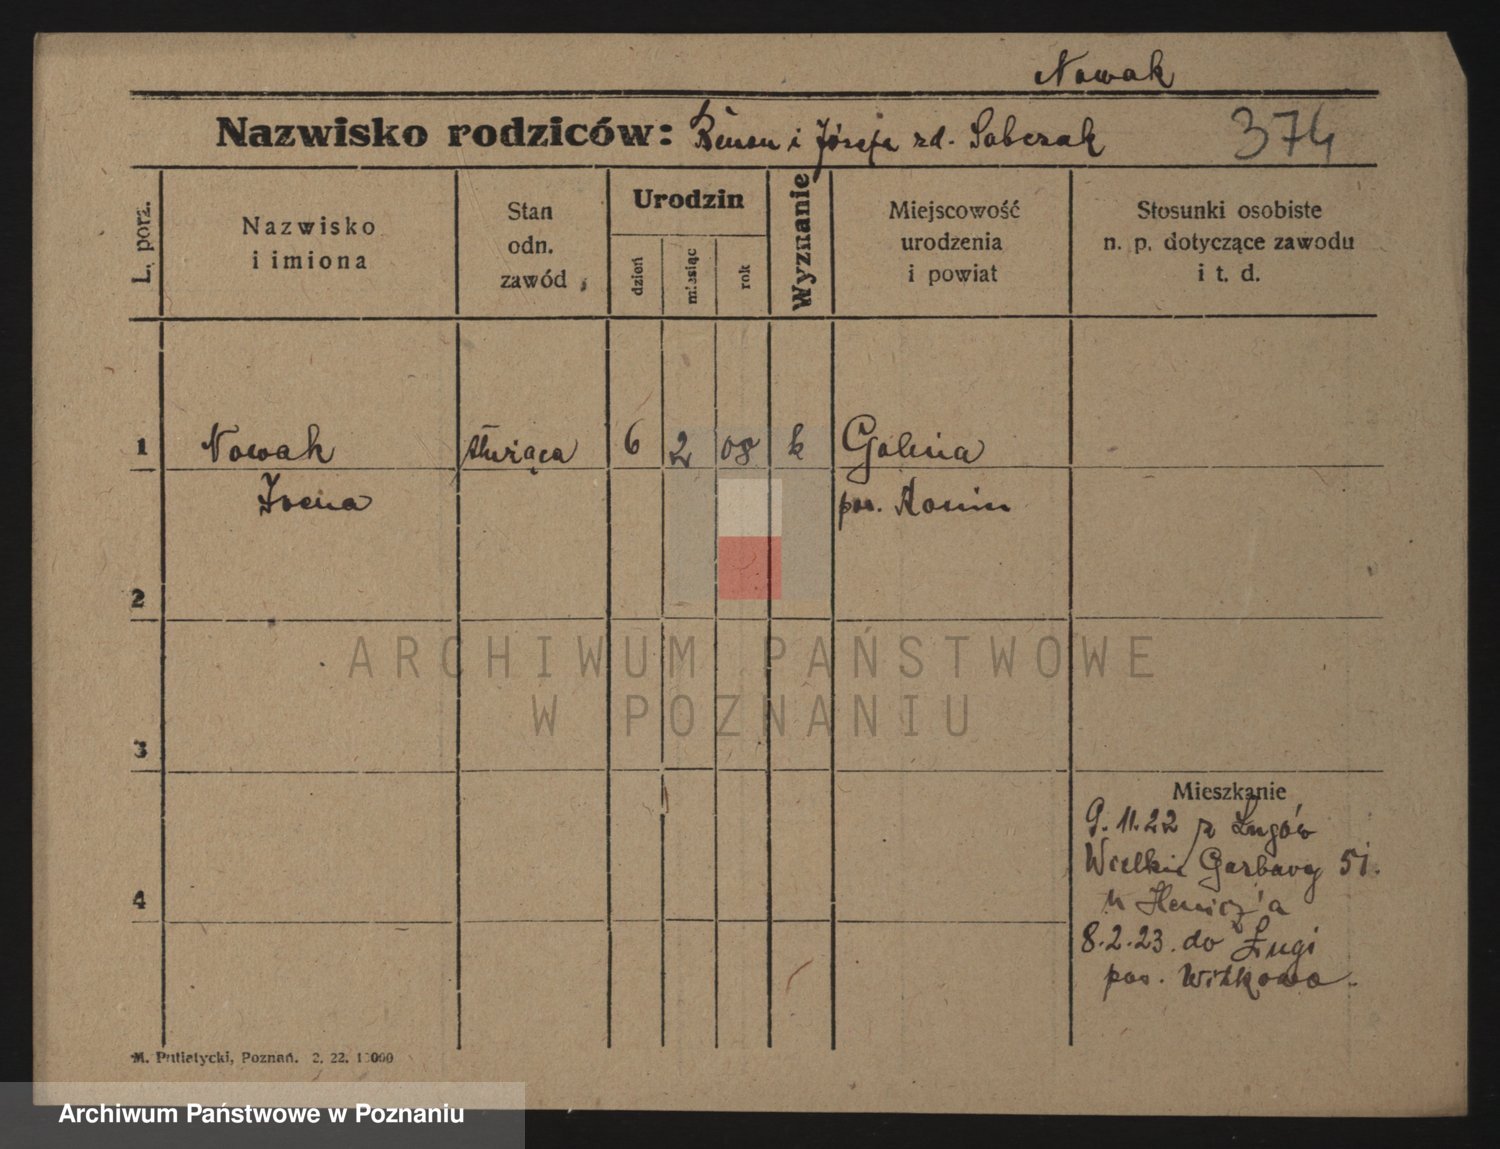 Nowak
Nazwisko rodziców: Zenon i Józefa zd. Sobczak
374
L. porz.
Nazwisko
i imiona
Stan
odn.
zawód
Urodzin
dzień
miesiąc
rok
Wyznanie
Miejscowość
urodzenia
i powiat
Stosunki osobiste
n. p. dotyczące zawodu
i t. d.
1 Nowak służąca 6 2 08 k Golina
Irena pow. Konin
2
3
4
Mieszkanie
9.11.22 z Ługów
Wielkie Garbary 51.
u Henicz'a
8.2.23. do Ługi
pow. Witkowo.
M. Putiatycki, Poznań. 2. 22. 10000
ARCHIWUM PAŃSTWOWE
W POZNANIU
Archiwum Państwowe w Poznaniu